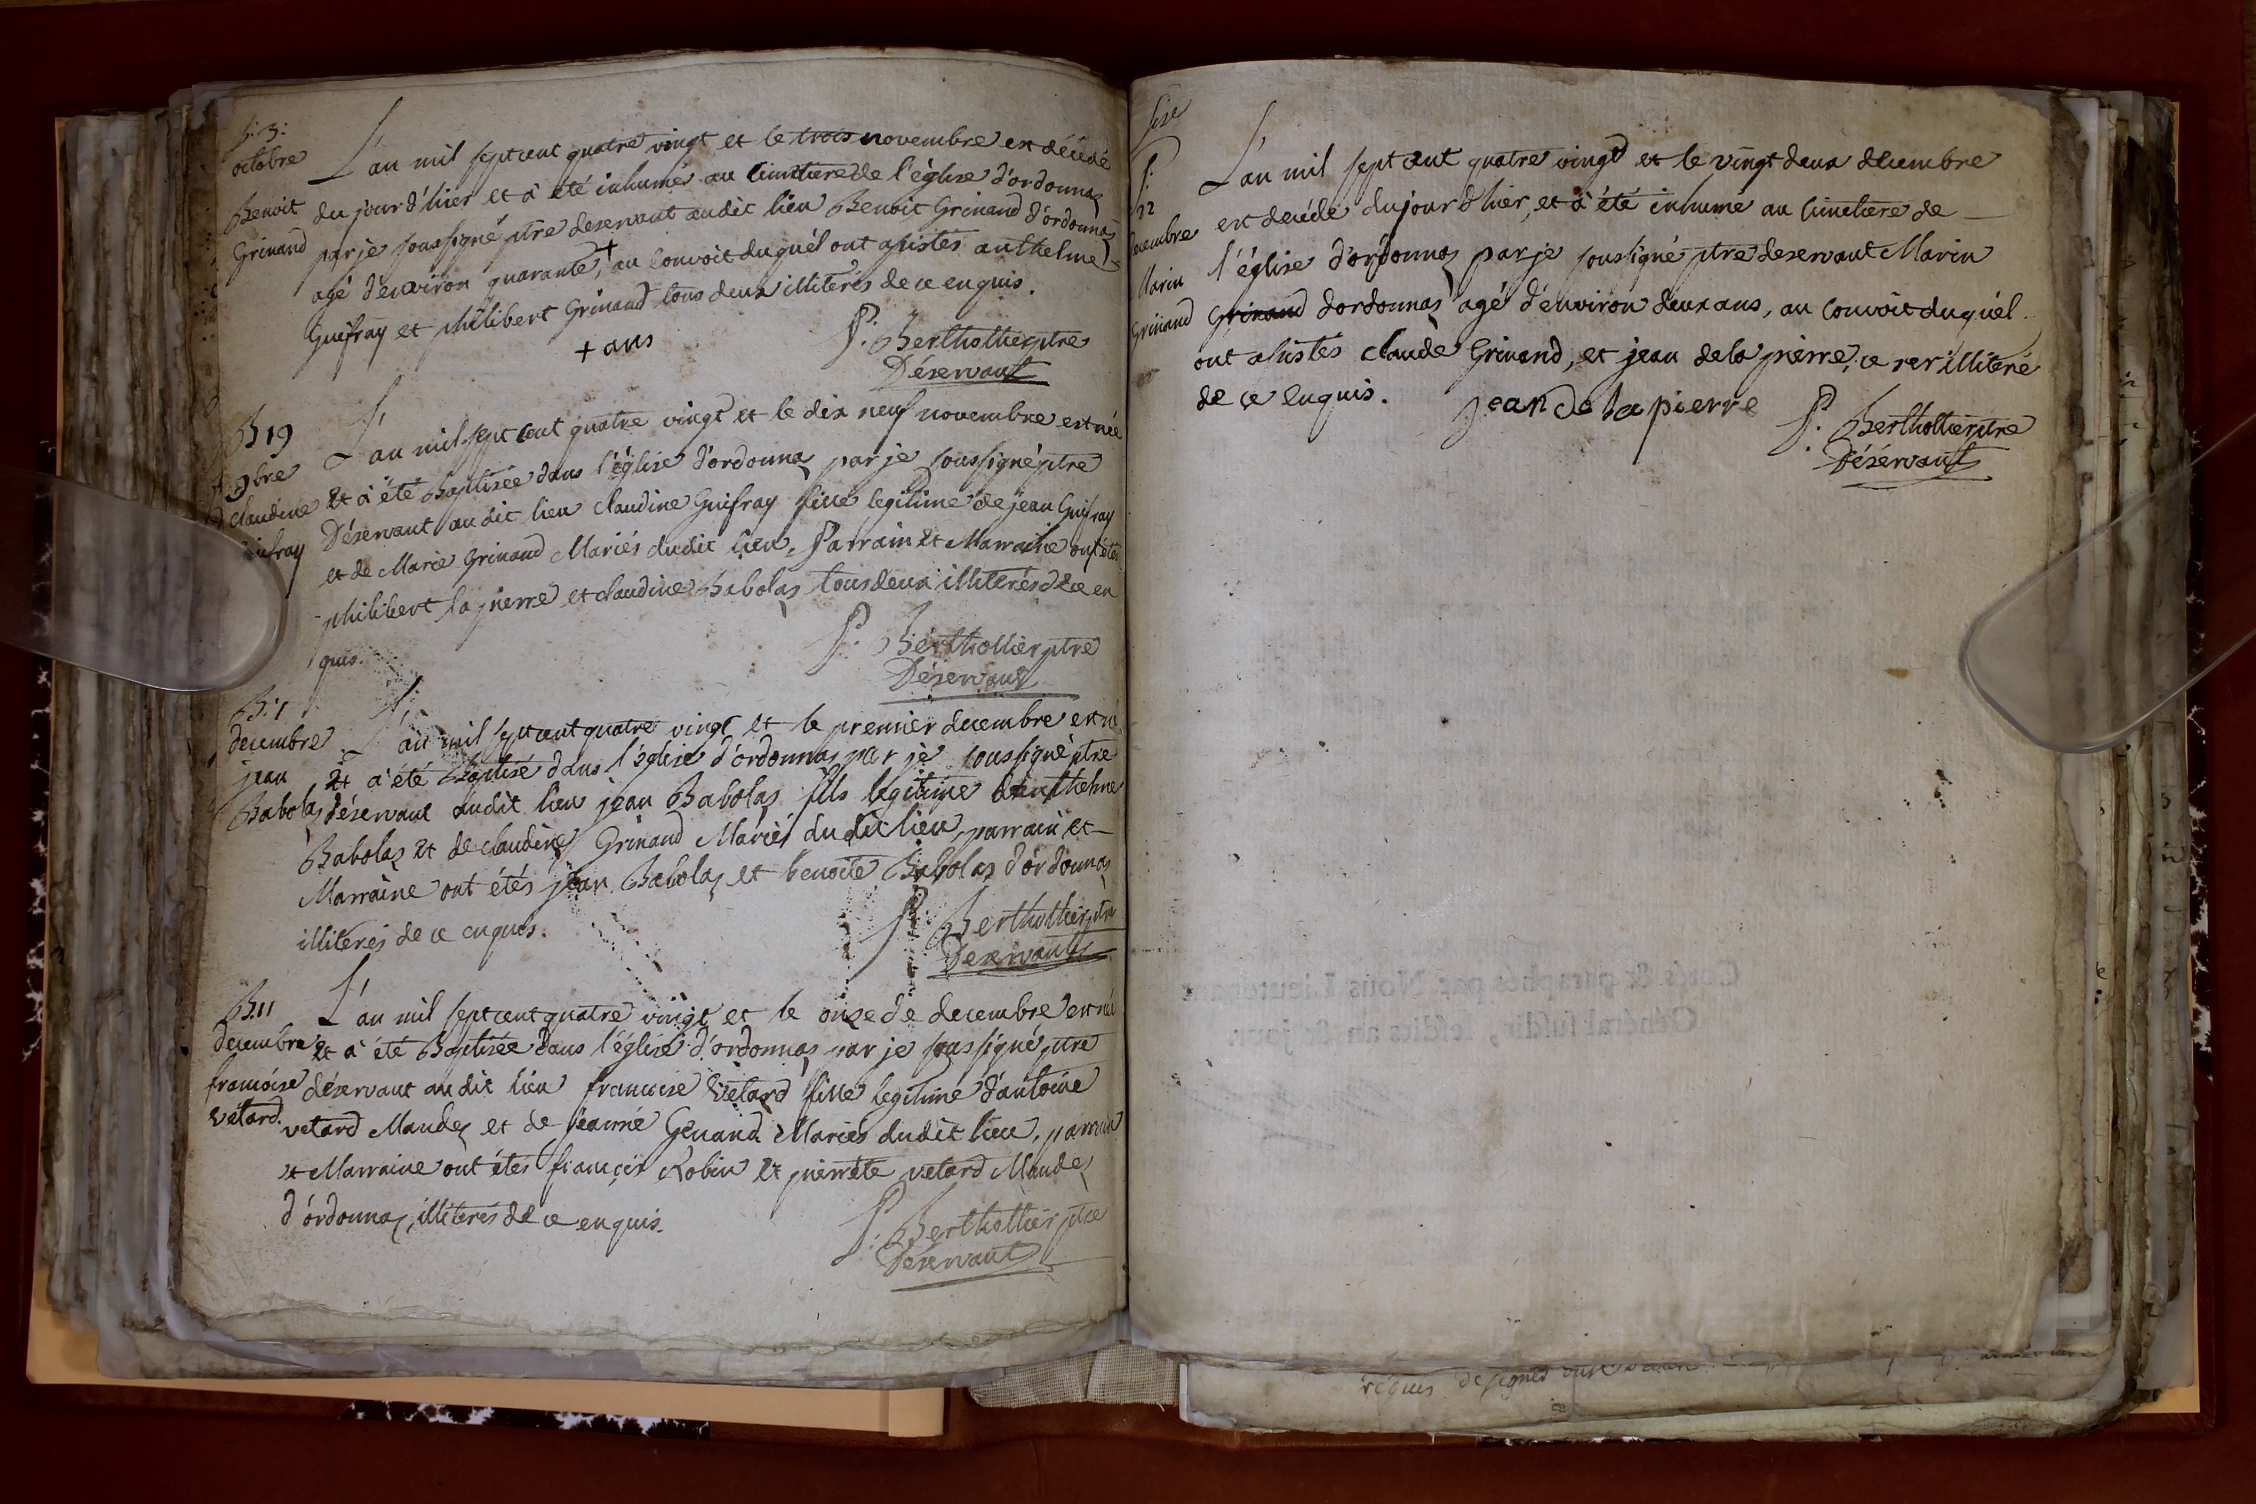 S: 3:
octobre
Benoit
Grinand
L'an mil sept cent quatre vingt et le trois novembre est décédé
du jour d'hier et à été inhumé au cimetiere de l'église d'ordonnas
par je soussigné ptre deservant audit lieu Benoit Grinand d'ordonnas
agé d'environ quarante, + au convoit duquél ont assistés anthelme
Guifray et philibert Grinand tous deux illiterés de ce enquis.
+ ans
P: Berthollier ptre
Déservant
B 19
9bre
claudine
guifray
L'an mil sept cent quatre vingt et le dix neuf novembre est née
Et à été Baptisée dans l'église d'ordonnas par je soussigné ptre
Déservant audit lieu claudine Guifray fille legitime de jean Guifray
et de Marie Grinand Mariés dudit lieu, Parrain et Marraine ont étés
philibert la pierre et claudine Babolas tous deux illiterés de ce en
quis.
P: Berthollier ptre
Déservant
B: 1
decembre
jean
Babolas
L'an mil sept cent quatre vingt et le premier decembre est né
Et a été Baptisé dans l'église d'ordonnas par je soussigné ptre
déservant audit lieu jean Babolas fils legitime d'anthelme
Babolas et de claudine Grinand Mariés du dit lieu, parrain et
Marraine ont étés jean Babolas et benoite Babolas d'ordonnas
illiterés de ce enquis.
P: Berthollier ptre
Deservant
B: 11
decembre
francoise
vetard.
L'an mil sept cent quatre vingt et le onze de decembre est née
et a été Baptisée dans l'église d'ordonnas par je soussigné ptre
déservant audit lieu francoise Vetard fille legitime d'antoine
vetard Maudes et de jeanne Genand Mariés dudit lieu, parrain
et Marraine ont étés françois Robin et pierrete vetard Maudes
d'ordonnas, illiterés de ce enquis.
P: Berthollier ptre
Déservant
sixe
S:
22
decembre
Marin
Grinand
L'an mil sept cent quatre vingt et le vingt deux décembre
est decédé du jour d'hier, et à été inhumé au cimetiere de
l'église d'ordonnas par je soussigné ptre deservant Marin
Grinand d'ordonnas agé d'environ deux ans, au convoit duquél
ont assistés claude Grinand, et jean de la pierre, ce 1er illiteré
de ce enquis.
jean de la pierre
P: Berthollier ptre
Déservant
requis de signer